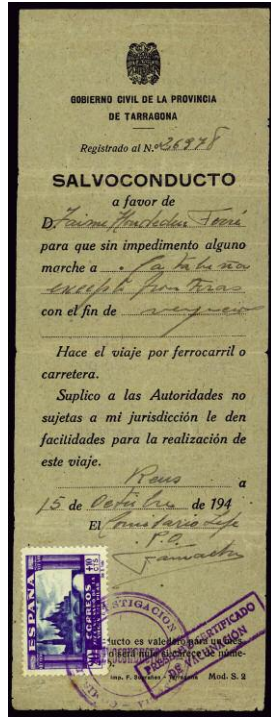 GOBIERNO CIVIL DE LA PROVINCIA
DE TARRAGONA
Registrado al N. 26978
SALVOCONDUCTO
a favor de
D. Jaime Ferré
para que sin impedimento alguno
marche a
excepto fronteras
con el fin de negocio
Hace el viaje por ferrocarril o
carretera.
Suplico a las Autoridades no
sujetas a mi jurisdicción le den
facilidades para la realización de
este viaje.
Reus a
15 de Octubre de 194
El Comisario Jefe
P.O.
ESPAÑA
CORREOS
INVESTIGACION
PRESENTÓ CERTIFICADO
DE VACUNACIÓN
ducto es valedero para un mes
será nulo si carece de núme-
Imp. F. Sugrañes - Tarragona Mod. S. 2